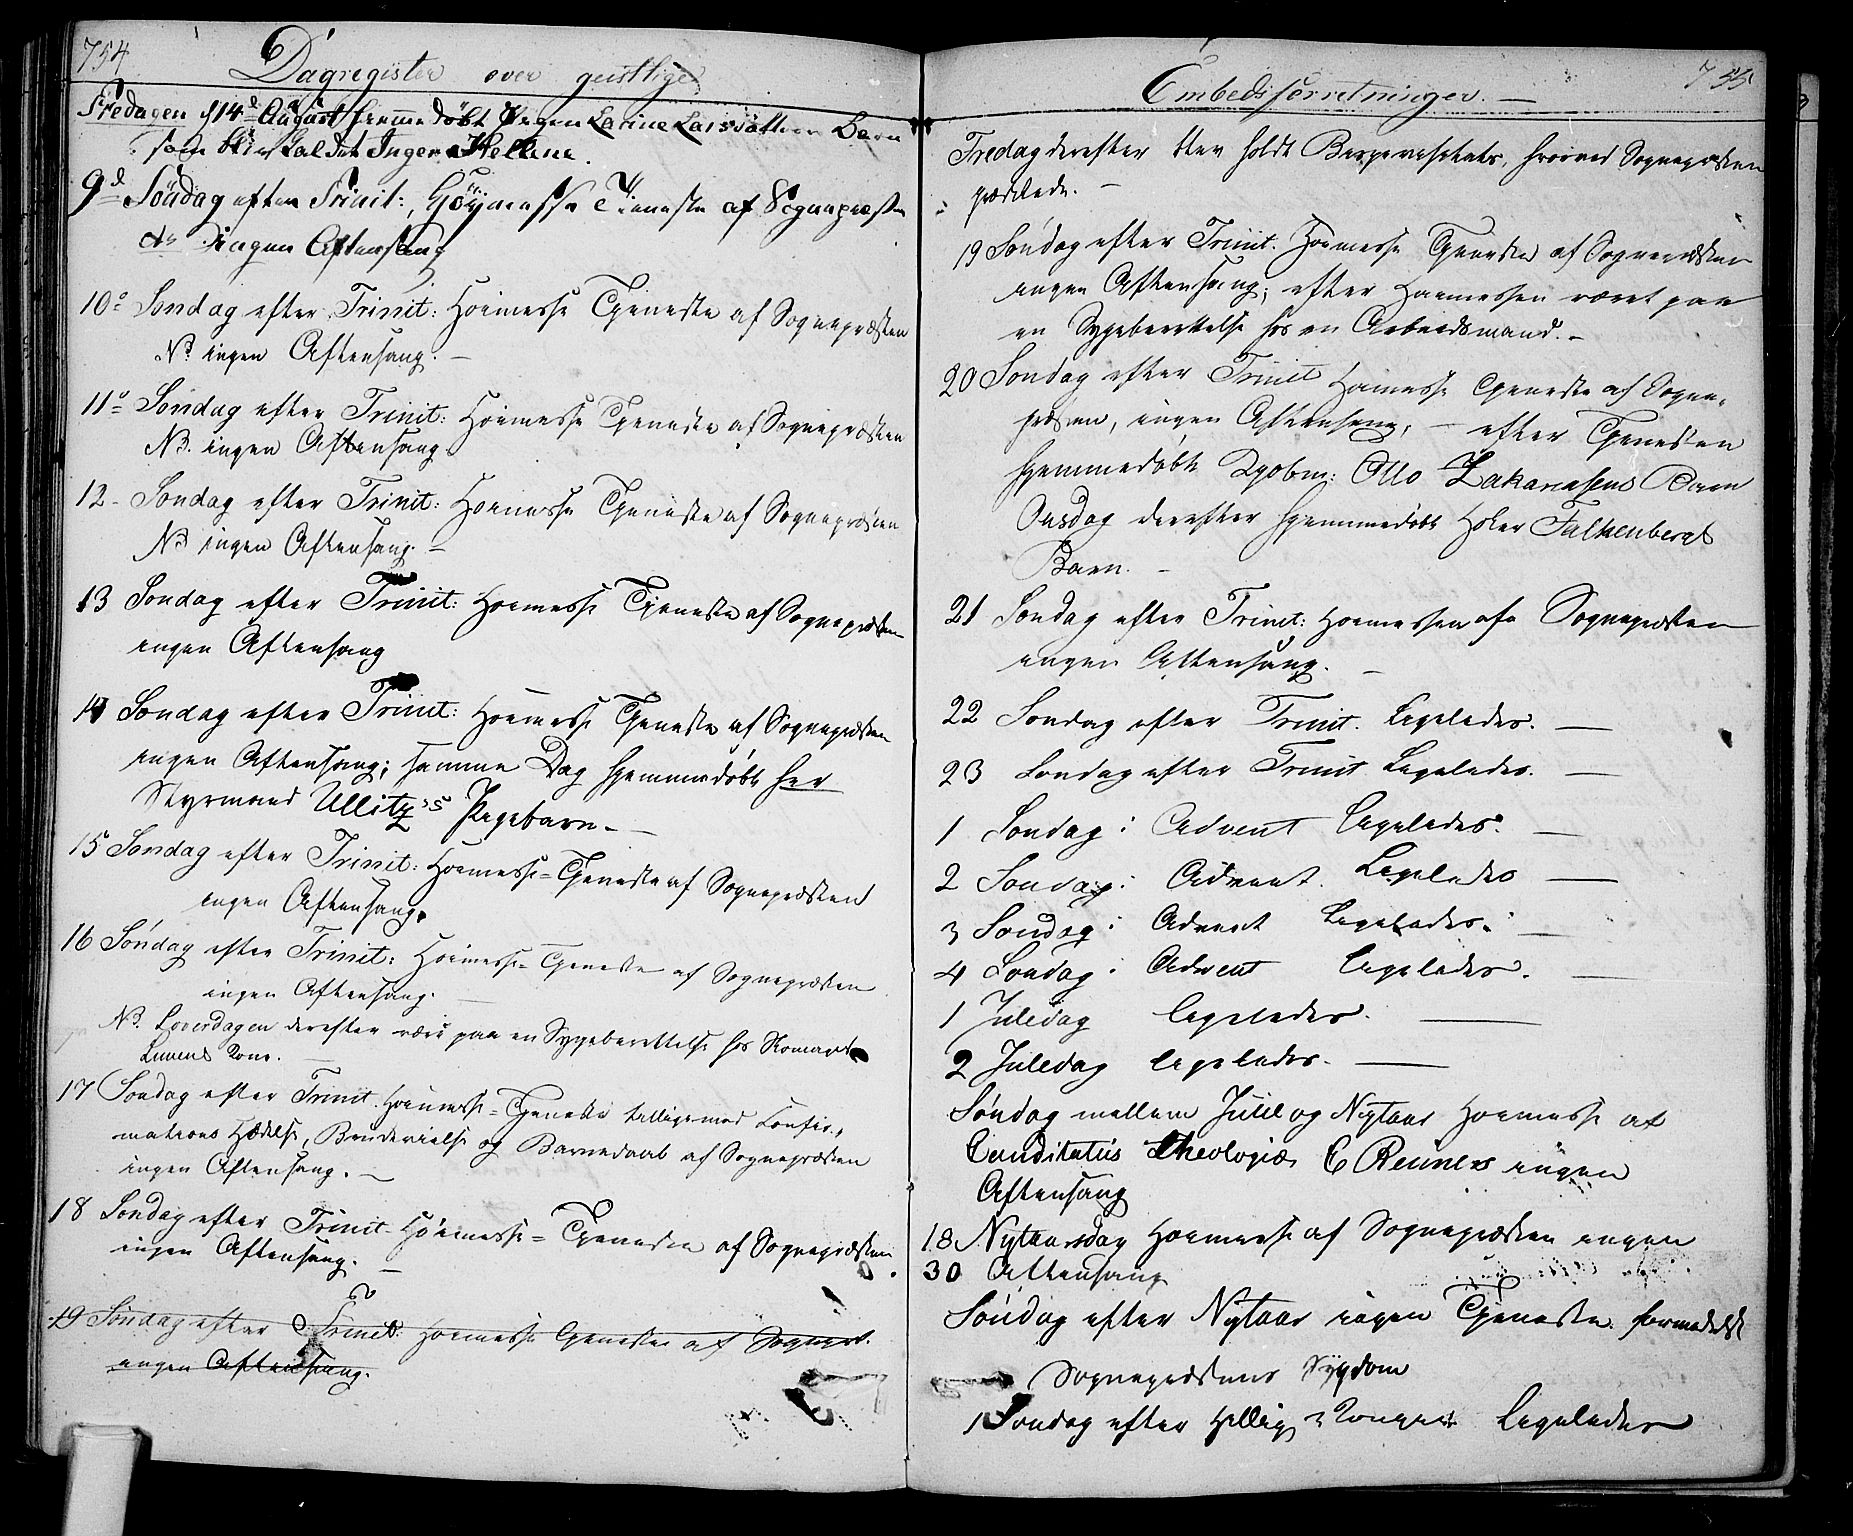 754
Dagregister over geistlige
Fredagen d 14d August hiemmedøbt Pigen Larine Larsdatters Barn
som blev kaldet Inger Hellene.
9d Søndag efter Trinit:, Høymesse Tieneste af Sognepræsten
ingen Aftensang
10d Søndag efter Trinit: Høimesse Tjeneste af Sognepræsten
NB. ingen Aftensang. —
11d Søndag efter Trinit: Høimesse Tjeneste af Sognepræsten
NB. ingen Aftensang.
12- Søndag efter Trinit: Høimesse Tjeneste af Sognepræsten
NB ingen Aftensang. —
13 Søndag efter Trinit: Høimesse Tjeneste af Sognepræsten
ingen Aftensang
14 Søndag efter Trinit: Høimesse Tjeneste af Sognepræsten
ingen Aftensang; samme Dag hjemmedøbt her
Styrmand Ullitz's Pigebarn. —
15 Søndag efter Trinit: Høimesse-Tjeneste af Sognepræsten
ingen Aftensang.
16 Søndag efter Trinit: Høimesse-Tjeneste af Sognepræsten
ingen Aftensang. —
NB. Løverdagen derefter være paa en Sygeberettelse hos
Kone. —
17 Søndag efter Trinit. Høimesse-Tjeneste tilligemed Confir-
mations Brudevielse og Barnedaab af Sognepræsten
ingen Aftensang. —
18 Søndag efter Trinit. Høimesse-Tjeneste af Sognepræsten
ingen Aftensang. —
19 Søndag efter Trinit: Høimesse Tjeneste af Sognepr.
ingen Aftensang.
755
Embedsforretninger. —
Fredag derefter blev holdt hvorved Sognepræsten
prædikede. —
19 Søndag efter Trinit. Høimesse Tjeneste af Sognepræsten
ingen Aftensang; efter Høimessen været paa
en Sygeberettelse hos en Arbeidsmand. -
20 Søndag efter Trinit Høimesse Tjeneste af Sogne-
præsten, ingen Aftensang, — efter Tjenesten
hjemmedøbt Otto Zakariasens Barn
Onsdag derefter hjemmedøbt Høker Falkenbergs
Barn. —
21 Søndag efter Trinit: Høimessen af Sognepræsten
ingen Aftensang. —
22 Søndag efter Trinit. Ligeledes. —
23 Søndag efter Trinit Ligeledes. —
1 Søndag i Advent ligeledes. —
2 Søndag i Advent. Ligeledes —
3 Søndag i Advent Ligeledes. —
4 Søndag i Advent ligeledes. —
1 Juledag ligeledes. —
2 Juledag ligeledes. —
Søndag mellem Juul og Nytaar Høimesse af
Canditatus Theologiæ C Reiners ingen
Aftensang
18 Nytaarsdag Høimesse af Sognepræsten ingen
30 Aftensang
Søndag efter Nytaar ingen Tjeneste formedelst
Sognepræstens Sygdom
1 Søndag efter Hellig 3 Konger Ligeledes